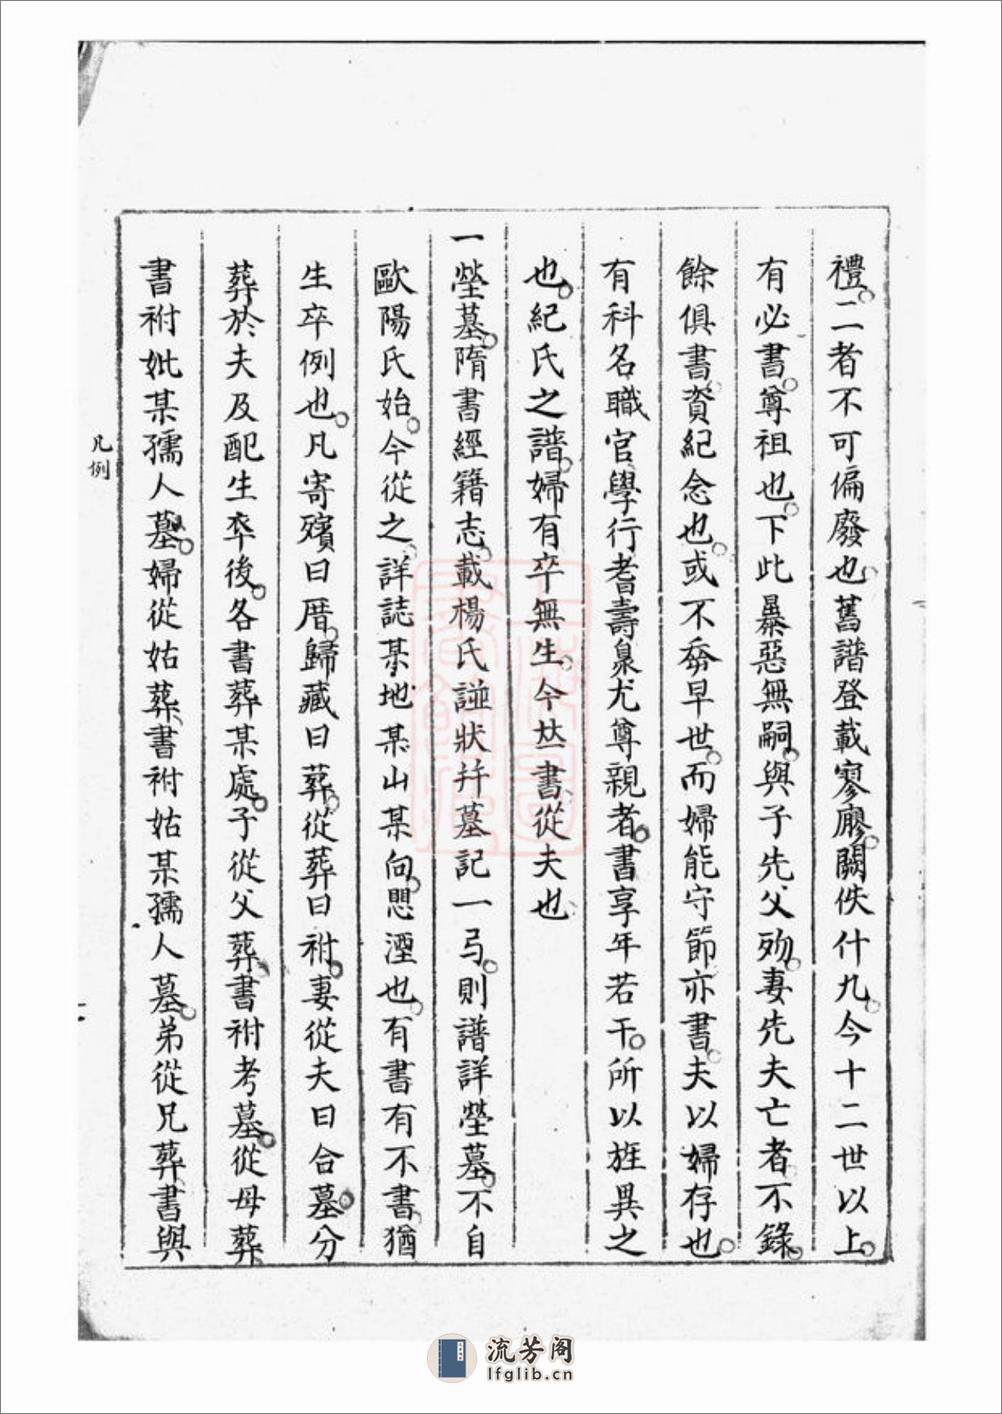 禮。二者不可偏廢也。舊譜登載寥廖。闕佚什九。今十二世以上。
有必書。尊祖也。下此暴惡無嗣。與子先父歿。妻先夫亡者不錄。
餘俱書。資紀念也。或不發早世。而婦能守節亦書。夫以婦存也。
有科名職官學行耆壽臬尤尊親者。書享年若干。所以旌異之
也。紀氏之譜。婦有卒無生。今𠀤書。從夫也。
一塋墓。隋書經籍志。載楊氏諡狀并墓記一弓。則譜詳塋墓。不自
歐陽氏始。今從之。詳誌某地某山某向。思湮也。有書有不書。猶
生卒例也。凡寄殯曰厝。歸藏曰葬。從葬曰祔。妻從夫曰合墓。分
葬於夫及配生卒後。各書葬某處。子從父葬。書祔考墓。從母葬。
書祔妣某孺人墓。婦從姑葬。書祔姑某孺人墓。弟從兄葬。書與
凡例
流芳阁
lfglib.cn